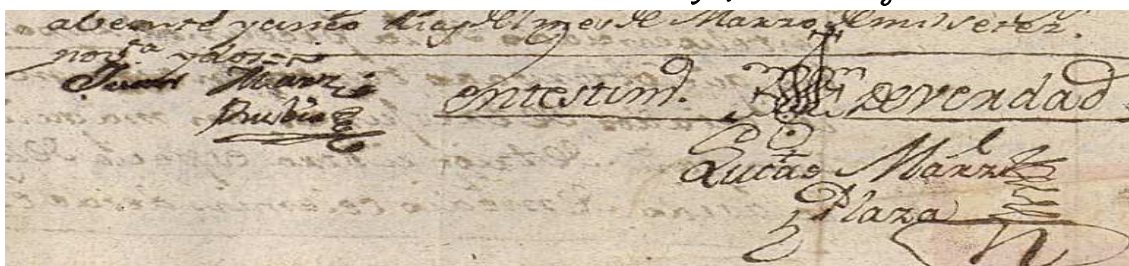 a veinte y cinco dias del mes de Marzo de mil setez.
nov.ta y dos =
Juan Marz
Rubio
en testim.
de verdad
Lucas Marz
Plaza